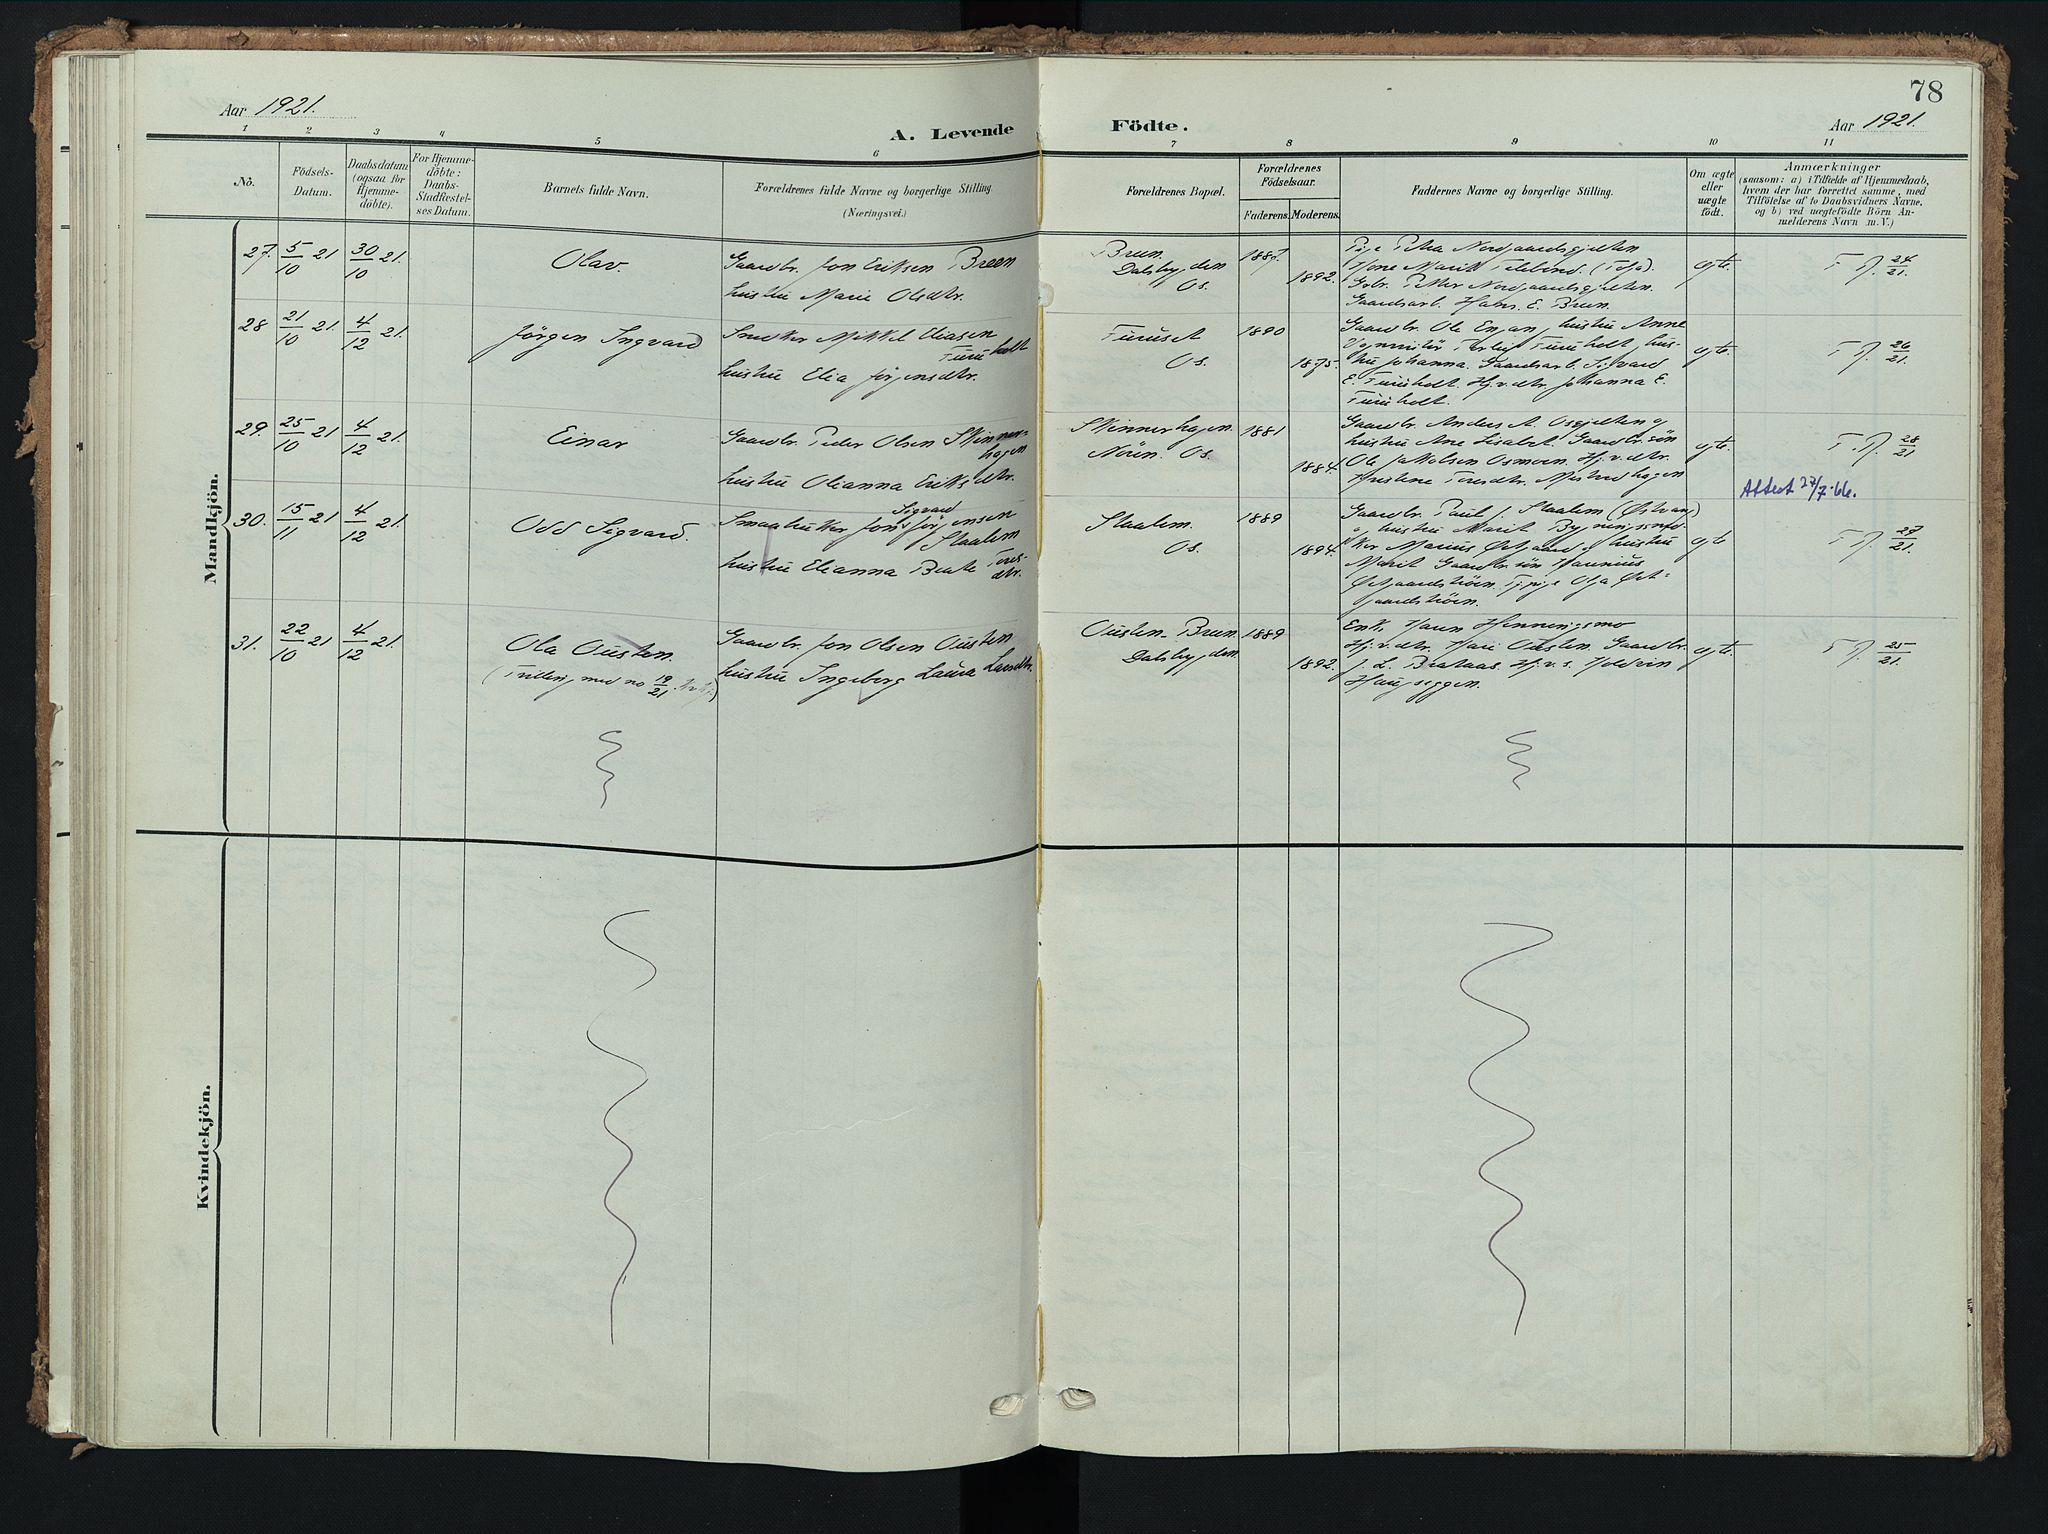 78
Aar 1921.
A. Levende Födte.
Aar 1921.
1 2 3 4 5 6 7 8 9 10 11
No.
Födsels-
Datum.
Daabsdatum
(ogsaa for
Hjemme-
döbte).
For Hjemme-
döbte:
Daabs-
Stadfæstel-
ses Datum.
Barnets fulde Navn.
Forældrenes fulde Navne og borgerlige Stilling.
(Næringsvei.)
Forældrenes Bopæl.
Forældrenes
Födselsaar.
Faderens. Moderens.
Faddernes Navne og borgerlige Stilling.
Om ægte
eller
uægte
födt.
Anmærkninger
(saasom: a) i Tilfælde af Hjemmedaab,
hvem der har forrettet samme, med
Tilföielse af to Daabsvidners Navne,
og b) ved uægtefödte Börn An-
melderens Navn m. V.)
Mandkjön.
27. 5/10 21 30/10 21. Olav.
Gaardbr. Jon Eriksen Breen
hustru Marie Olsdtr.
Breen
Dalsbygden
Os.
1887. 1892.
Pige Petra Nordgaardsgjelten
Kone Marit
Gbr. Petter Nordgaardsgjelten.
Gaardsarb. Hans E. Breen.
egte. F. P. 24/21.
28 21/10 21. 4/12 21. Jörgen Ingvard
Snedker Mikkel Eliasen
Furuholt
hustru Elia Jörgensdtr.
Furuset
Os.
1890 1875.
Gaardbr. Ole Engan, hustru Anne
Furuholt, hus-
tru Johanna. Gaardsarb. Sigvard
E. Furuholt. Hj.v.dtr Johanna E.
Furuholt.
egte. F. P. 26/21.
29. 25/10 21 4/12 21. Einar
Gaardbr. Peder Olsen Skinner-
hagen
hustru Olianna Eriksdtr.
Skinnerhagen
Nören. Os.
1881 1884.
Gaardbr. Anders A. Osgjelten og
hustru Ane Lisabet. Gaardbr. sön
Ole Jakobsen Osmoen. Hj.v.dtr.
egte. F. P. 28/21
Attest 27/7-66.
30. 15/11 21 4/12 21. Odd Sigvard.
Sigvard
Smaabruker Jon Jörgensen
Staalem
hustru Elianna Beate Peders-
dtr.
Staalem.
Os.
1889 1894.
Gaardbr. Paul J. Staalem
og hustru Marit
Marius Östgaard og hustru
Marit Gaardbr. sön
Östgaardströen. Tj.pige Olga Öst-
gaardströen.
egte F. P. 27/21.
31. 22/10 21 4/12 21. Ola Ousten.
(Tvilling med no 19/21 )
Gaardbr. Jon Olsen Ousten
hustru Ingeborg Laura Larsdtr.
Ousten - Breen
Dalsbygden.
1889 1892.
Enke Karen Henningsmo
Hj.v.dtr. Kari Ousten. Gaardbr.
J. L. Brataas. Hj.v.s.
Haugseggen.
egte. F. P. 25/21.
Kvindekjön.